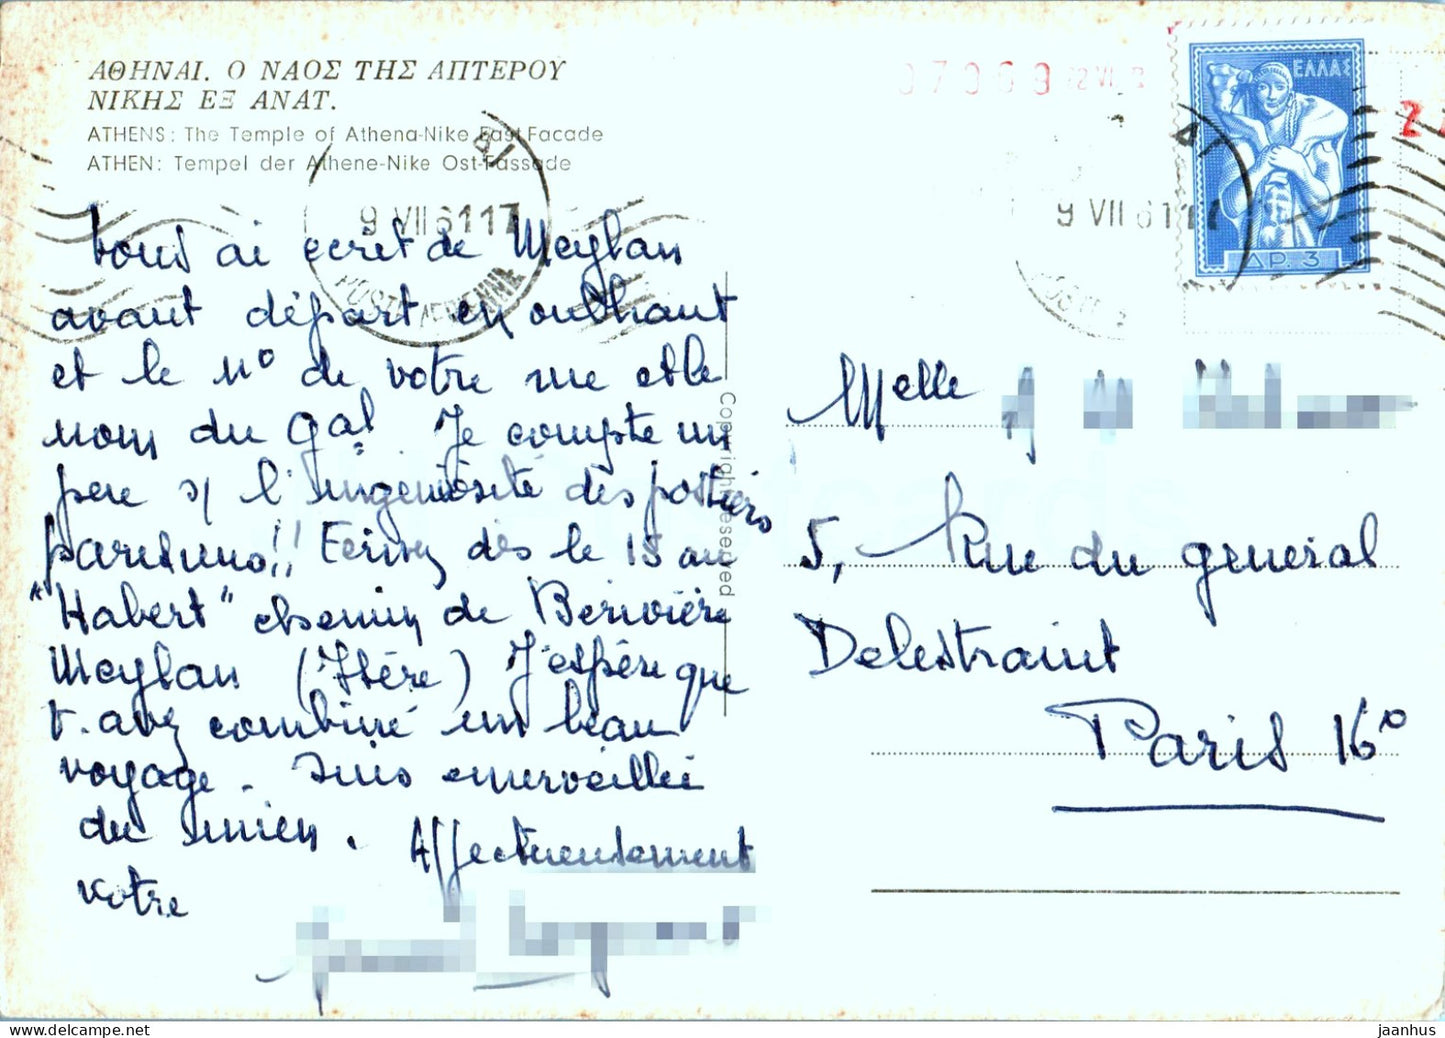 ΑΘΗΝΑΙ. Ο ΝΑΟΣ ΤΗΣ ΑΠΤΕΡΟΥ
ΝΙΚΗΣ ΕΞ ΑΝΑΤ.
ATHENS: The Temple of Athena-Nike East Facade
ATHEN: Tempel der Athene-Nike Ost-Fassade
9 VII 61 17
POSTE AERIENNE
vous ai ecrit de Meylan
avant départ en oubliant
et le n° de votre rue et le
nom du Gal Je compte un
peu s/ l'ingéniosité des postiers
parisiens!! Ecrivez dès le 15 au
"Habert" chemin de Berivière
Meylan (Isère) J'espère que
v. avez combiné un beau
voyage. Suis emerveillée
du mien. Affectueusement
votre
Copyright reserved
07069
9 VII 61 17
ΕΛΛΑΣ
ΔΡ. 3
2
Melle
5, Rue du general
Delestraint
Paris 16°
jaanhus
www.delcampe.net